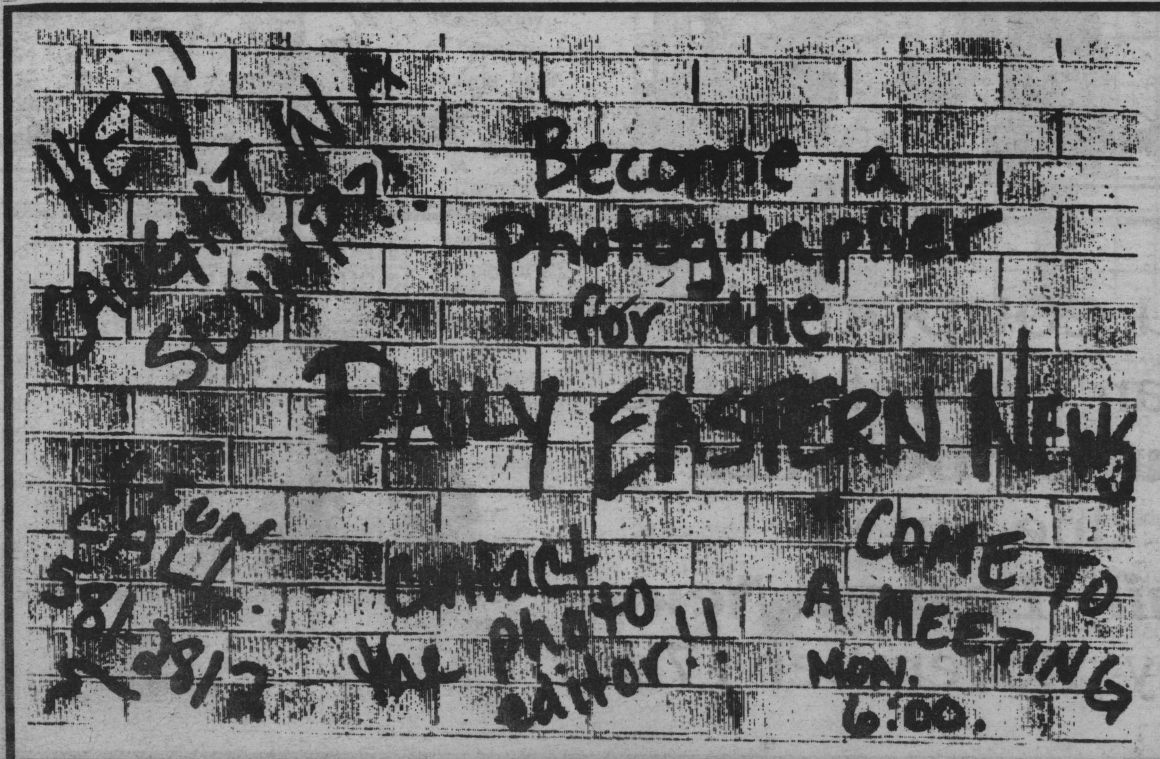 HEY!!
CAUGHT IN A
SCUMP??
Become a
photographer
for the
DAILY EASTERN NEWS
CALL
581
2812
contact
the photo
editor!!
COME TO
A MEETING
MON.
6:00.